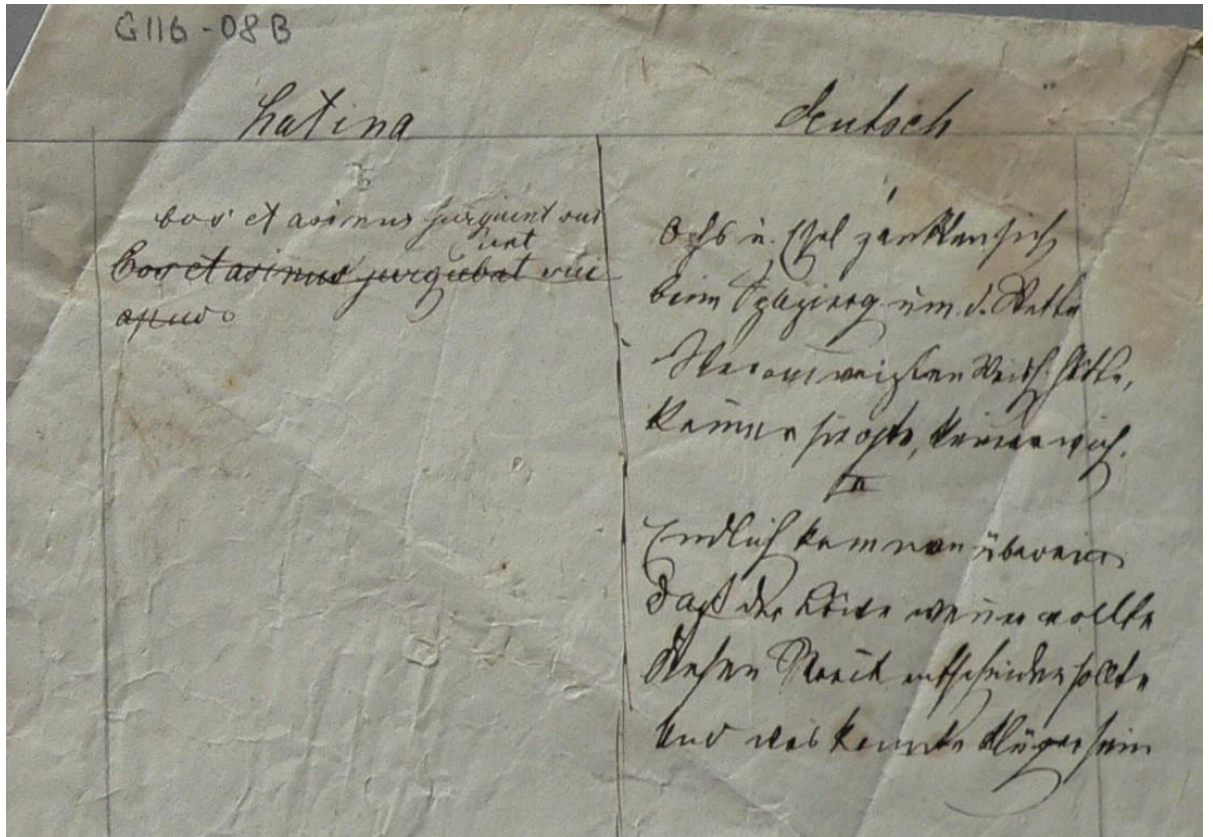 G116-08B
Latina
deutsch
bos et asinus jurgiunt sui
iunt
bos et asinus jurgubat sui
apud
Ochs u. Esel zankten sich
beim Spazierg. um d. Wette
Wer am meisten Weish. hätte,
Keiner siegte, keiner wich.
Endlich kam man überein
Daß der Löwe wenn er wollte
Diesen Streit entscheiden sollte
Und was konnte klüger sein